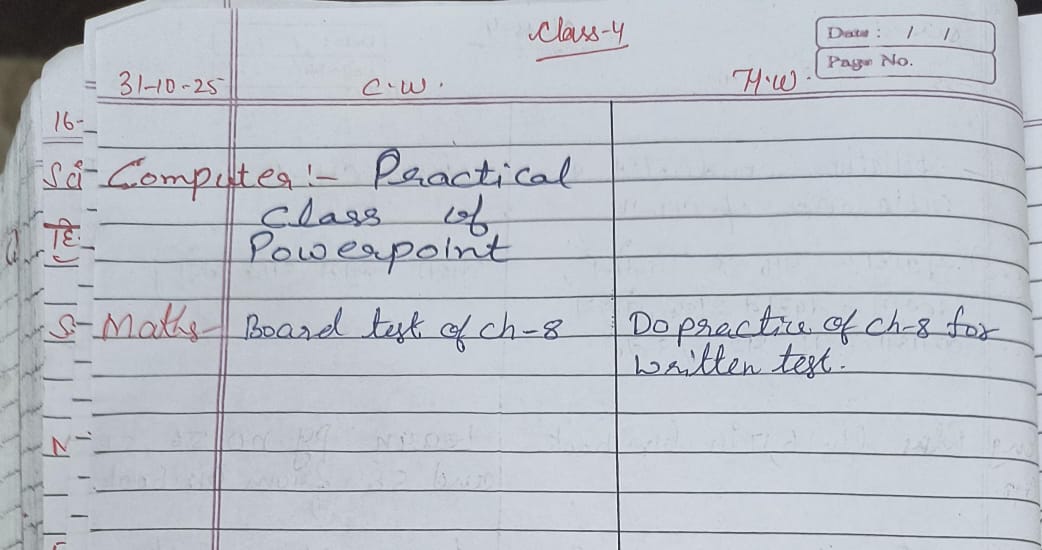 Class-4
Date: / /
Page No.
31-10-25 C.W. H.W.
16-
Sci
Computer:- Practical
Class of
Powerpoint
Maths- Board test of ch-8 Do practice of ch-8 for
written test.
N